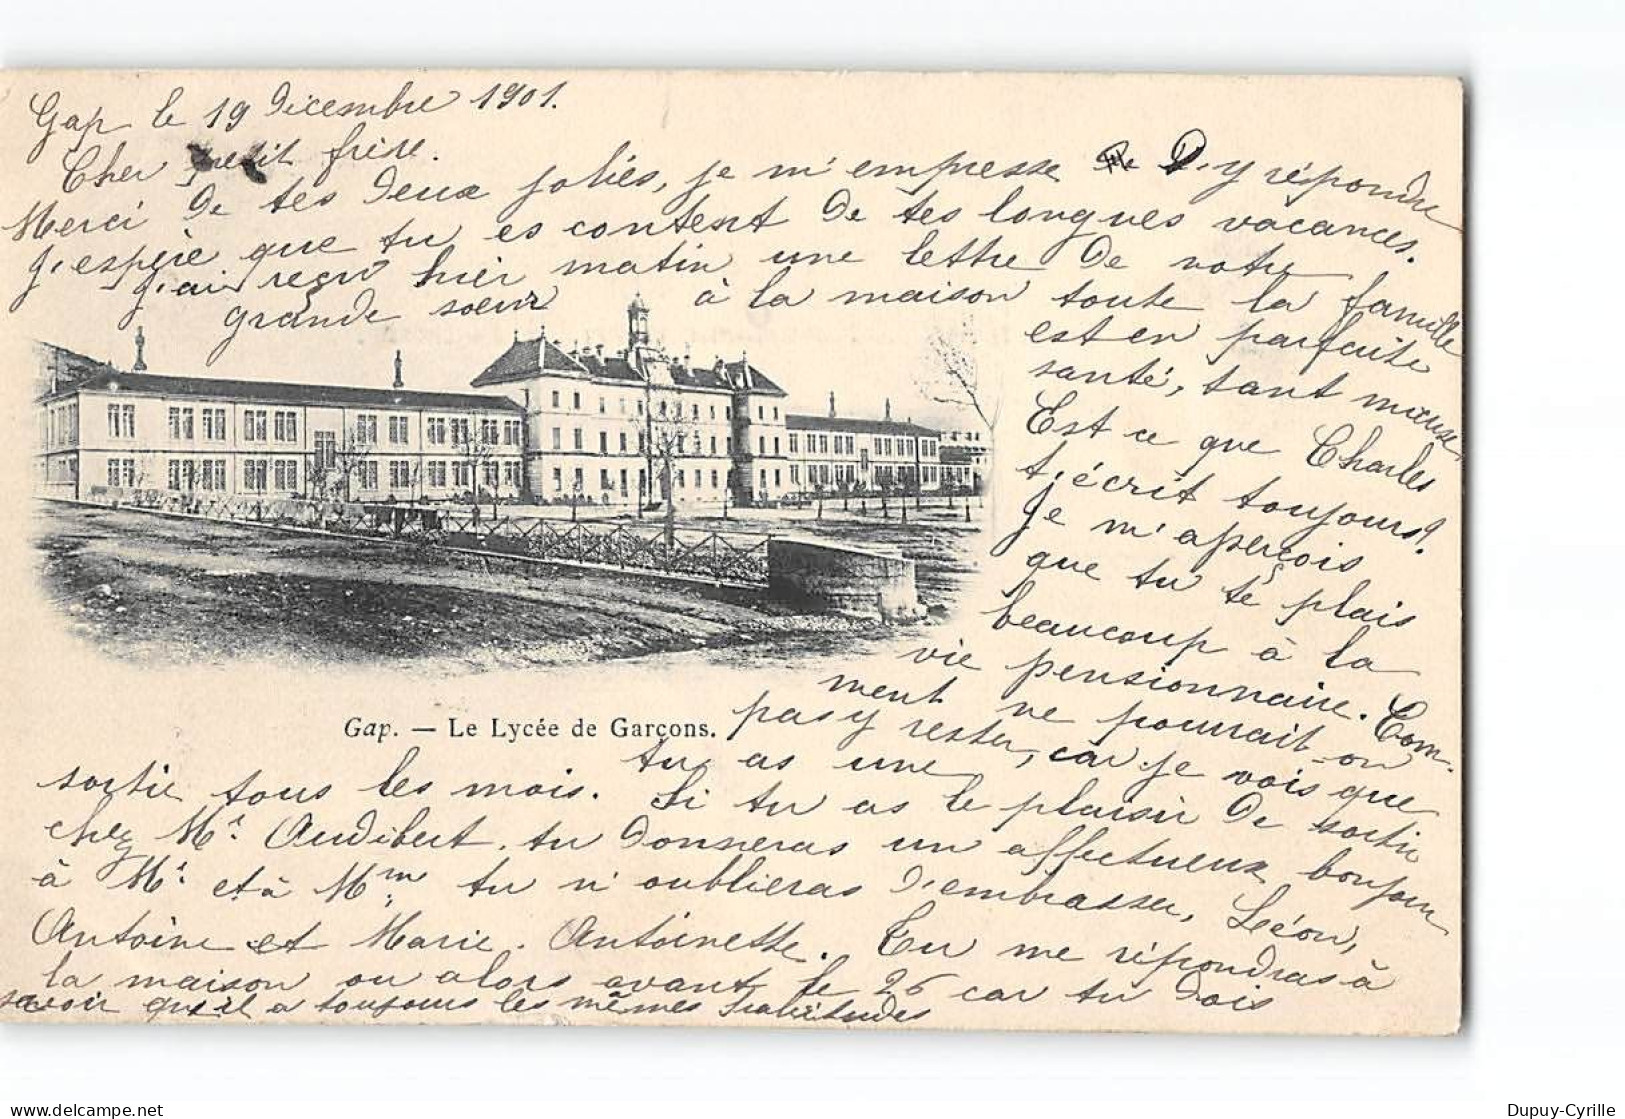 Gap le 19 Décembre 1901.
Cher petit frère.
Merci de tes deux joliés, je m'empresse D'y répondre
J'espère que tu es content de tes longues vacances.
J'ai reçu hier matin une lettre de notre
grande soeur à la maison toute la famille
est en parfaite
santé, tant mieux,
Est ce que Charles
t'écrit toujours?
Je m'aperçois
que tu te plais
beaucoup à la
vie pensionnaire. Com-
ment ne pourrait-on
pas y rester, car je vois que
Gap. — Le Lycée de Garçons.
tu as une sortie tous les mois. Si tu as le plaisir de sortir
chez Mr. Audibert. tu donneras un affectueux bonjour
à Mr. et à Mm. tu n'oublieras d'embrasser, Léon,
Antoine et Marie-Antoinette. Tu me répondras à
la maison ou alors avant le 26 car tu dois
savoir qu'il a toujours les mêmes habitudes
Dupuy-Cyrille
www.delcampe.net